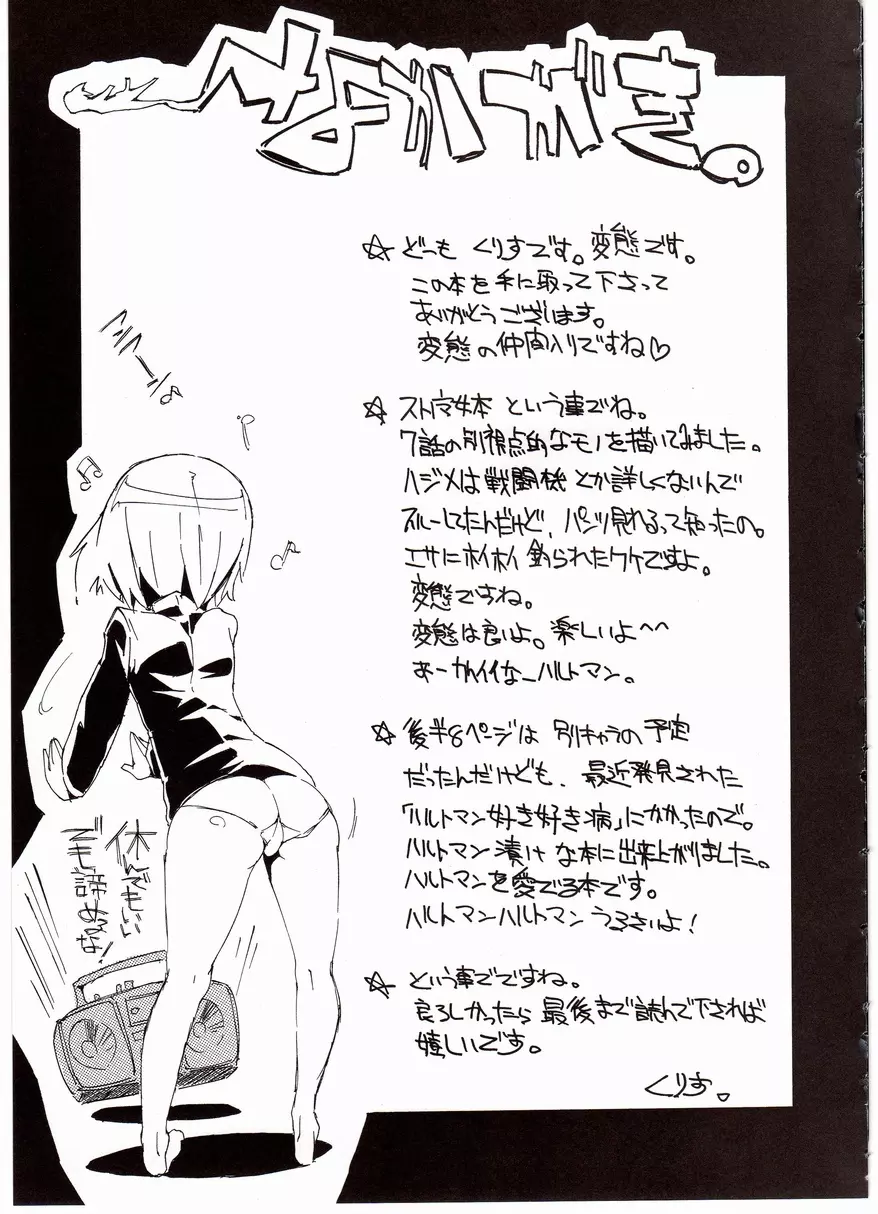 なかがき。
☆ どーも くりすです。変態です。
この本を手に取って下さって
ありがとうございます。
変態の仲間入りですね♡
☆ ストパン本 という事でね。
7話の別視点的なモノを描いてみました。
ハジメは戦闘機とか詳しくないんで
スルーしてたんだけど、パンツ見れるって知ったの。
エサにホイホイ釣られたワケですよ。
変態ですね。
変態は良いよ。楽しいよ〜〜
あーかわイイなーハルトマン。
☆ 後半8ページは 別キャラの予定
だったんだけども、最近発見された
「ハルトマン好き好き病」にかかったので。
ハルトマン漬けな本に出来上がりました。
ハルトマンを愛でる本です。
ハルトマンハルトマンうるさいよ!
☆ という事でですね。
良ろしかったら最後まで読んで下されば
嬉しいです。
くりす。
ミミミー♪
休んでもいい
でも諦めんな!